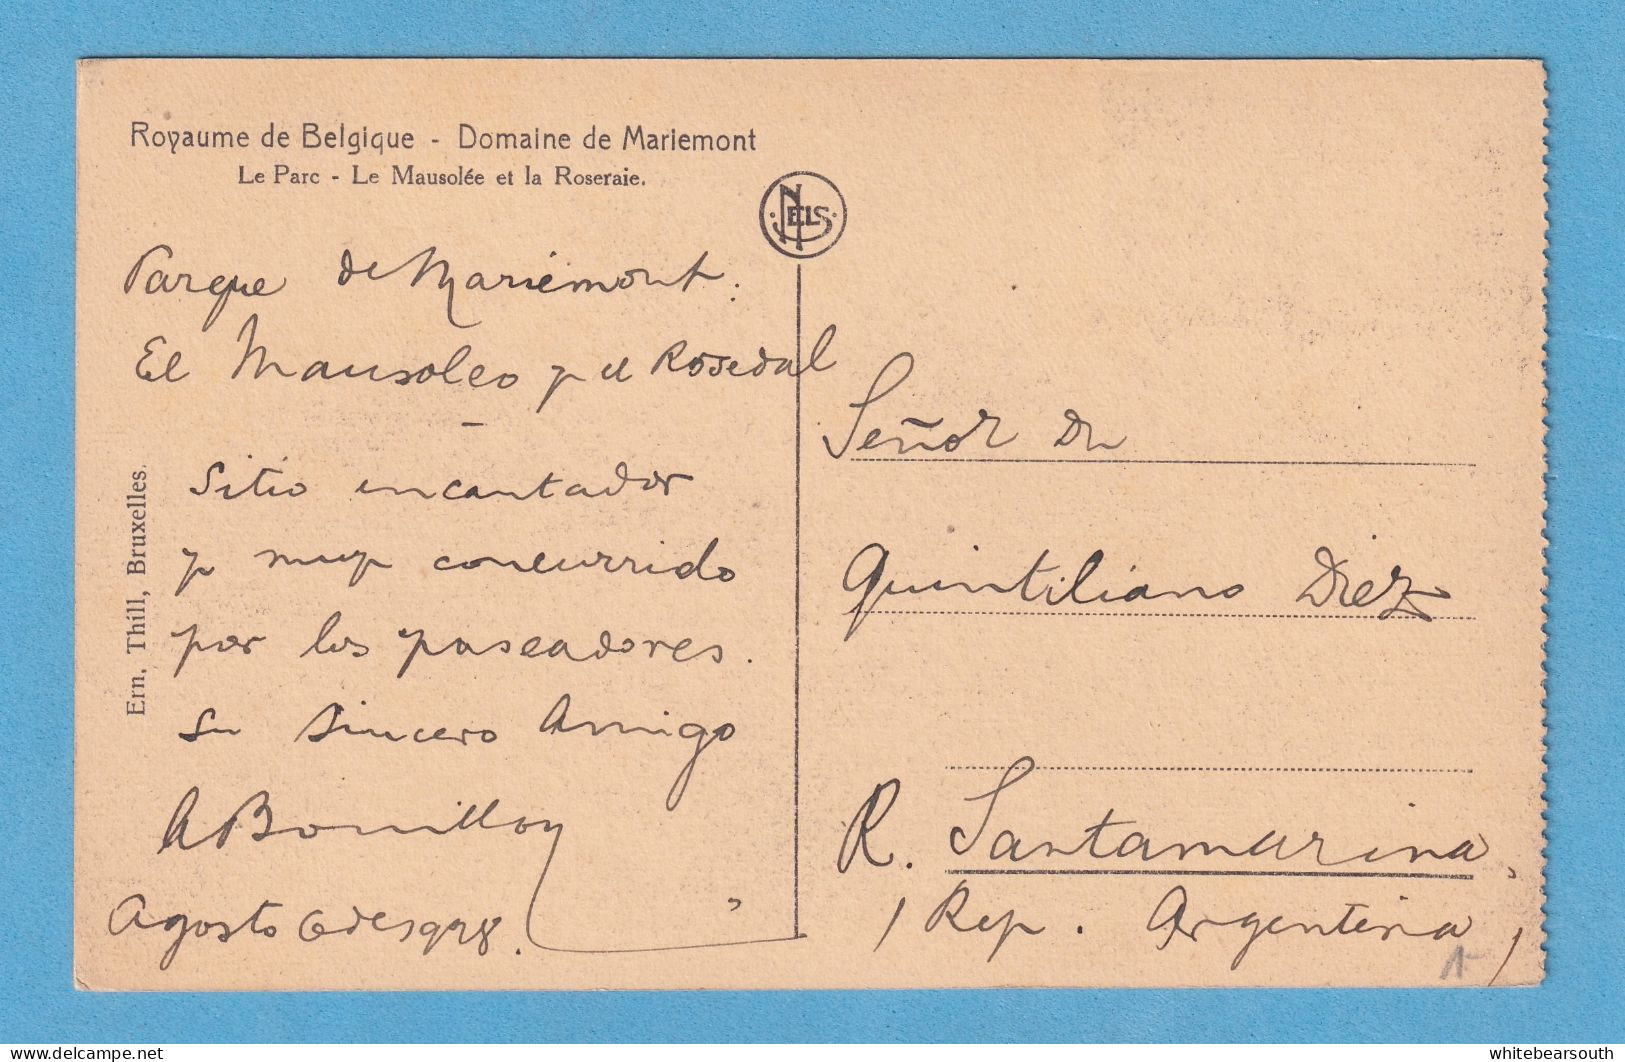 Royaume de Belgique - Domaine de Mariemont
Le Parc - Le Mausolée et la Roseraie.
NELS
Parque de Mariemont.
El Mausoleo y el Rosedal
Sitio encantador
y muy concurrido
por los paseadores.
Su sincero Amigo
A Bouillon
Agosto 6 de 1928.
Ern. Thill, Bruxelles.
Señor Dn
Quintiliano Diez
R. Santamarina,
/ Rep. Argentina /
1-
delcampe.net
whitebearsouth